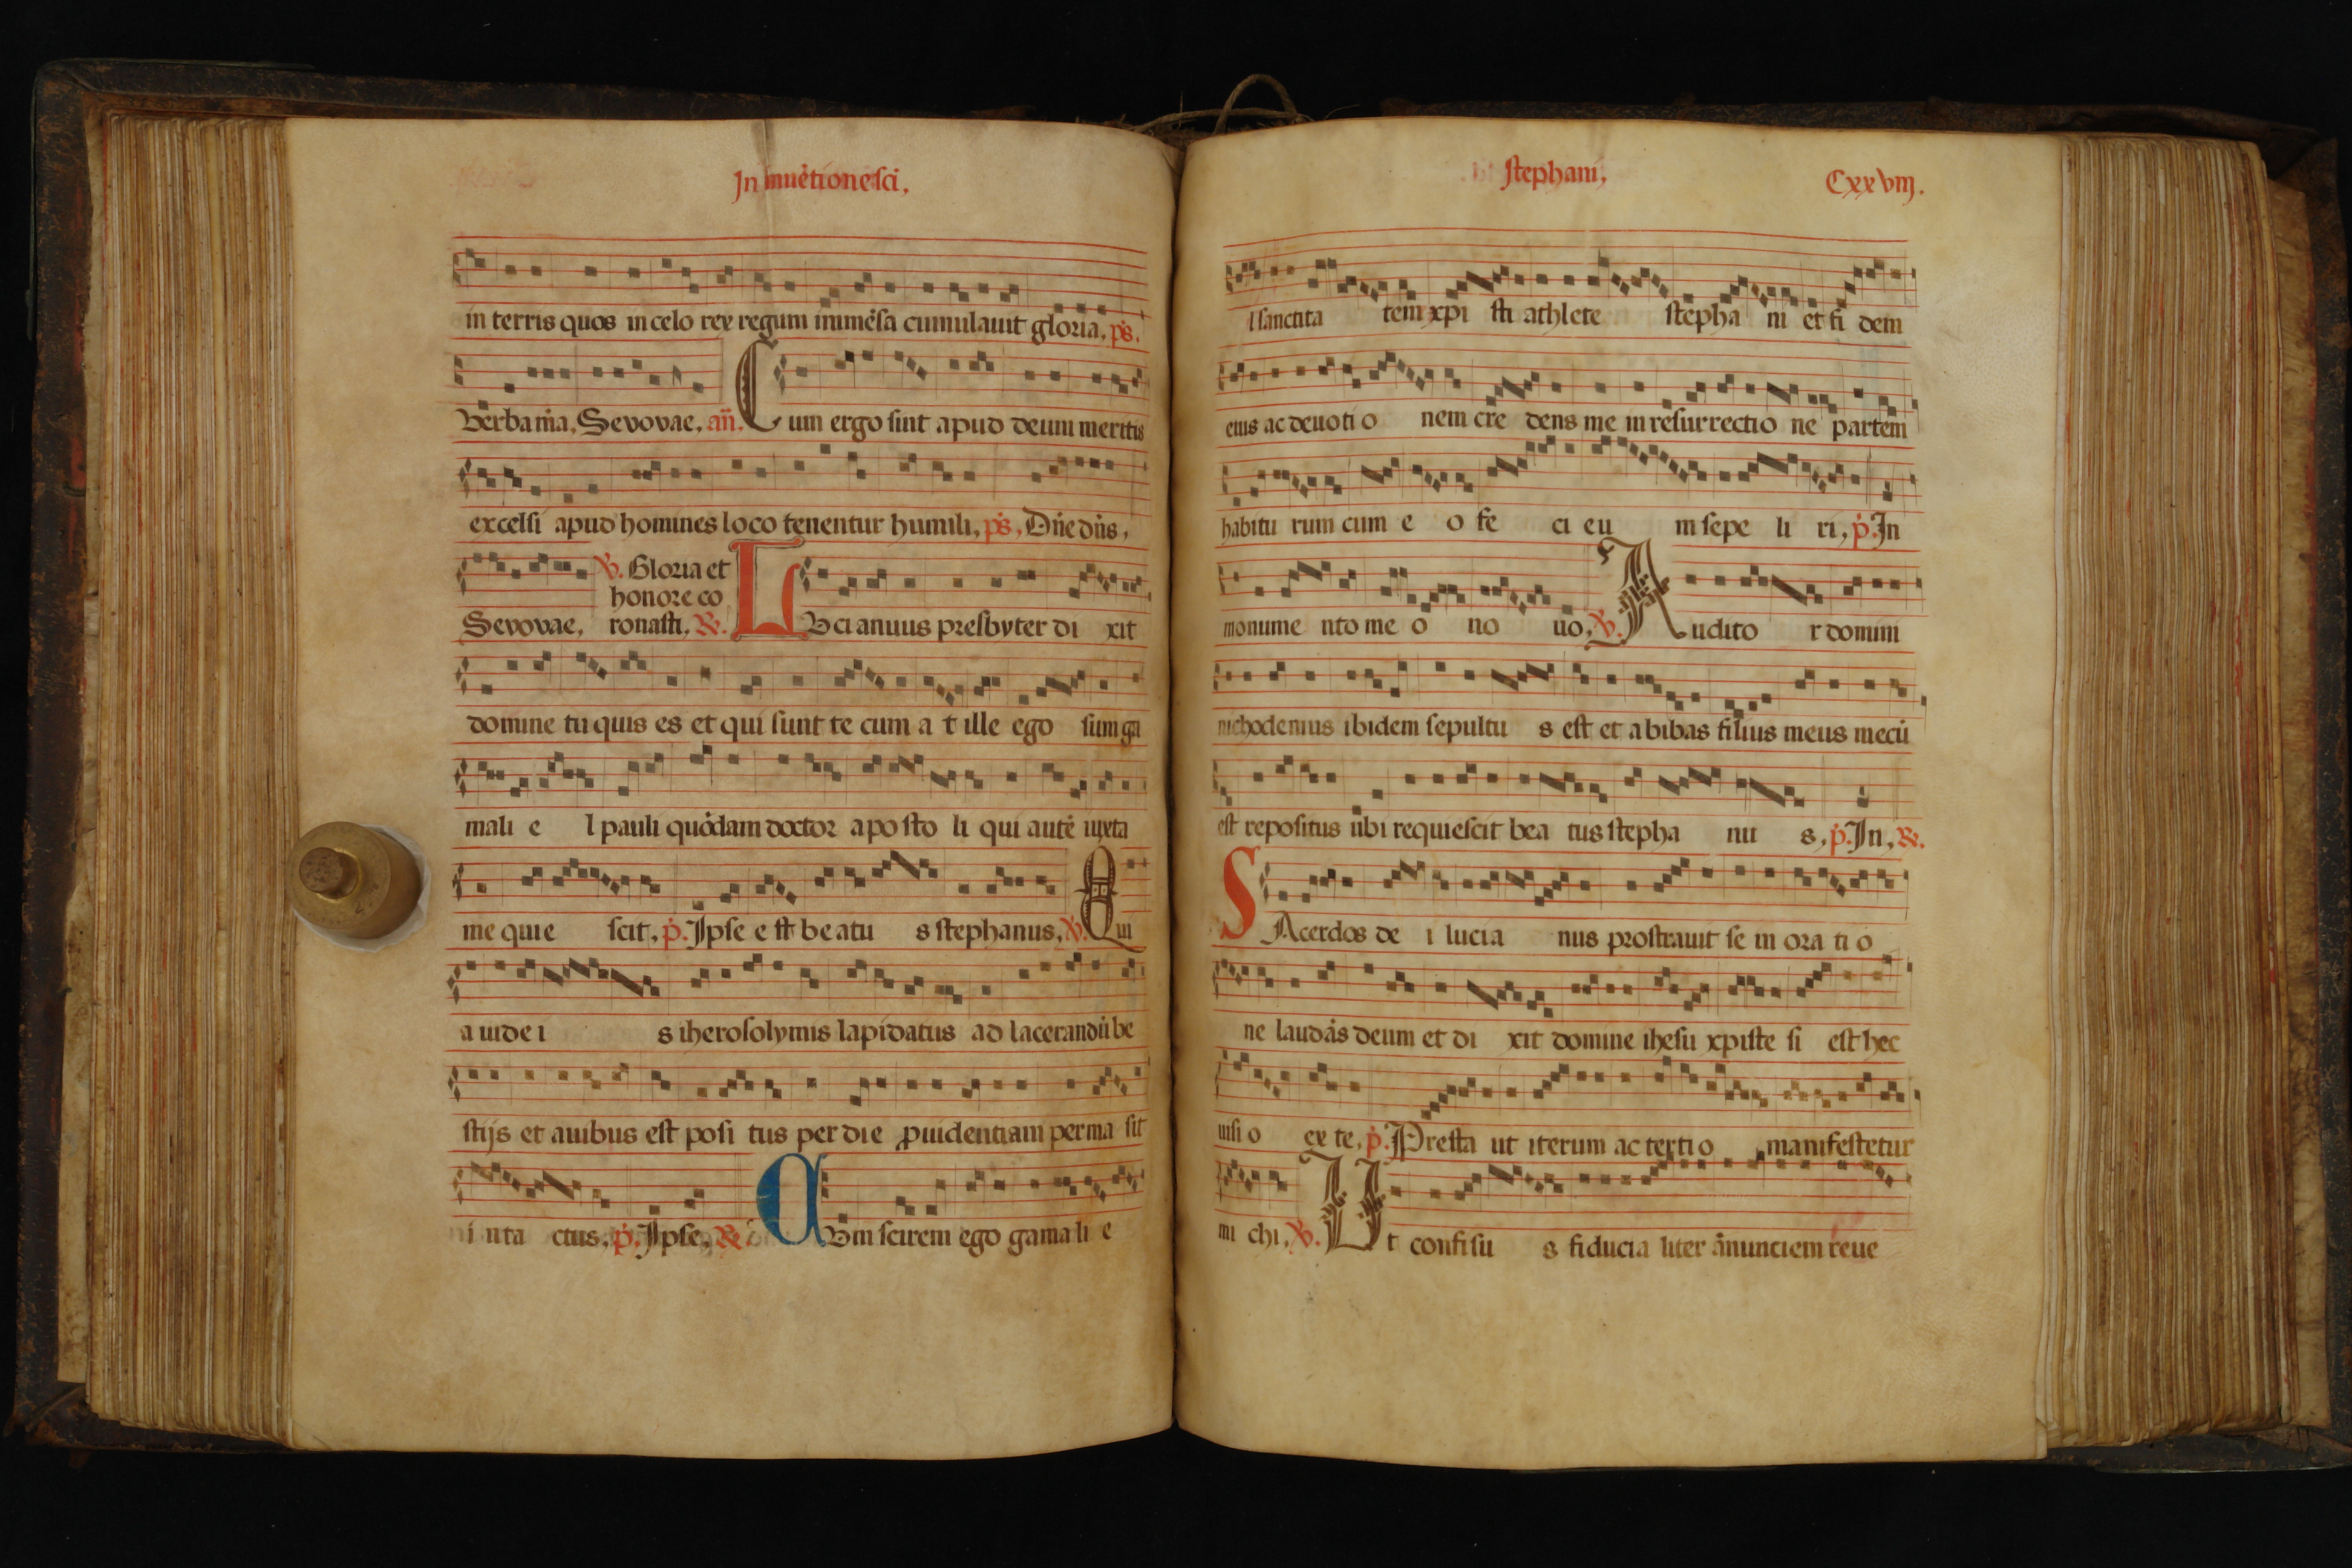 In inuētione sci,
in terris quos in celo rex regum inmēsa cumulauit gloria, ps.
Verba mā, Sevovae, an̄. Cum ergo sint apud deum meritis
excelsi apud homines loco tenentur humili, ps, Dn̄e dn̄s,
℣. Gloria et
honore co
Sevovae, ronasti, ℟. LVcianuus presbyter di xit
domine tu quis es et qui sunt te cum a t ille ego sum ga
mali e l pauli quōdam doctor apo sto li qui autē iuxta
me quie scit, p. Ipse e st be atu s stephanus, ℣. Qui
a iude i s iherosolymis lapidatus ad lacerandū be
stijs et auibus est posi tus per die ꝓuidentiam perma sit
ni nta ctus, p. Ipse, ℟ CVm scirem ego gama li e
stephani, Cxxviij.
l sanctita tem xpi sti athlete stepha ni et fi dem
eius ac deuoti o nem cre dens me in resurrectio ne partem
habitu rum cum e o fe ci eu m sepe li ri, p. In
monume nto me o no uo, ℣. Audito r domini
nichodemus ibidem sepultu s est et abibas filius meus mecū
est repositus ubi requiescit bea tus stepha nu s, p. In, ℟.
SAcerdos de i lucia nus prostrauit se in ora ti o
ne laudās deum et di xit domine ihesu xpiste si est hec
uisi o ex te, p. Presta ut iterum ac terti o manifestetur
mi chi, ℣. Ut confisu s fiducia liter ānunciem reue